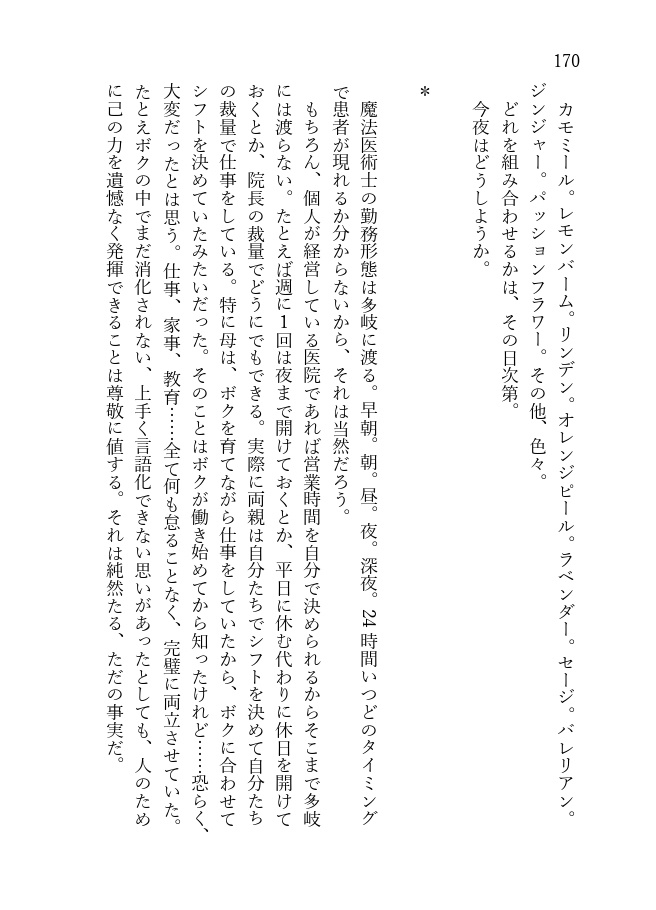 170
カモミール。レモンバーム。リンデン。オレンジピール。ラベンダー。セージ。バレリアン。
ジンジャー。パッションフラワー。その他、色々。
どれを組み合わせるかは、その日次第。
今夜はどうしようか。
*
魔法医術士の勤務形態は多岐に渡る。早朝。朝。昼。夜。深夜。24時間いつどのタイミング
で患者が現れるか分からないから、それは当然だろう。
もちろん、個人が経営している医院であれば営業時間を自分で決められるからそこまで多岐
には渡らない。たとえば週に1回は夜まで開けておくとか、平日に休む代わりに休日を開けて
おくとか、院長の裁量でどうにでもできる。実際に両親は自分たちでシフトを決めて自分たち
の裁量で仕事をしている。特に母は、ボクを育てながら仕事をしていたから、ボクに合わせて
シフトを決めていたみたいだった。そのことはボクが働き始めてから知ったけれど……恐らく、
大変だったとは思う。仕事、家事、教育……全て何も怠ることなく、完璧に両立させていた。
たとえボクの中でまだ消化されない、上手く言語化できない思いがあったとしても、人のため
に己の力を遺憾なく発揮できることは尊敬に値する。それは純然たる、ただの事実だ。